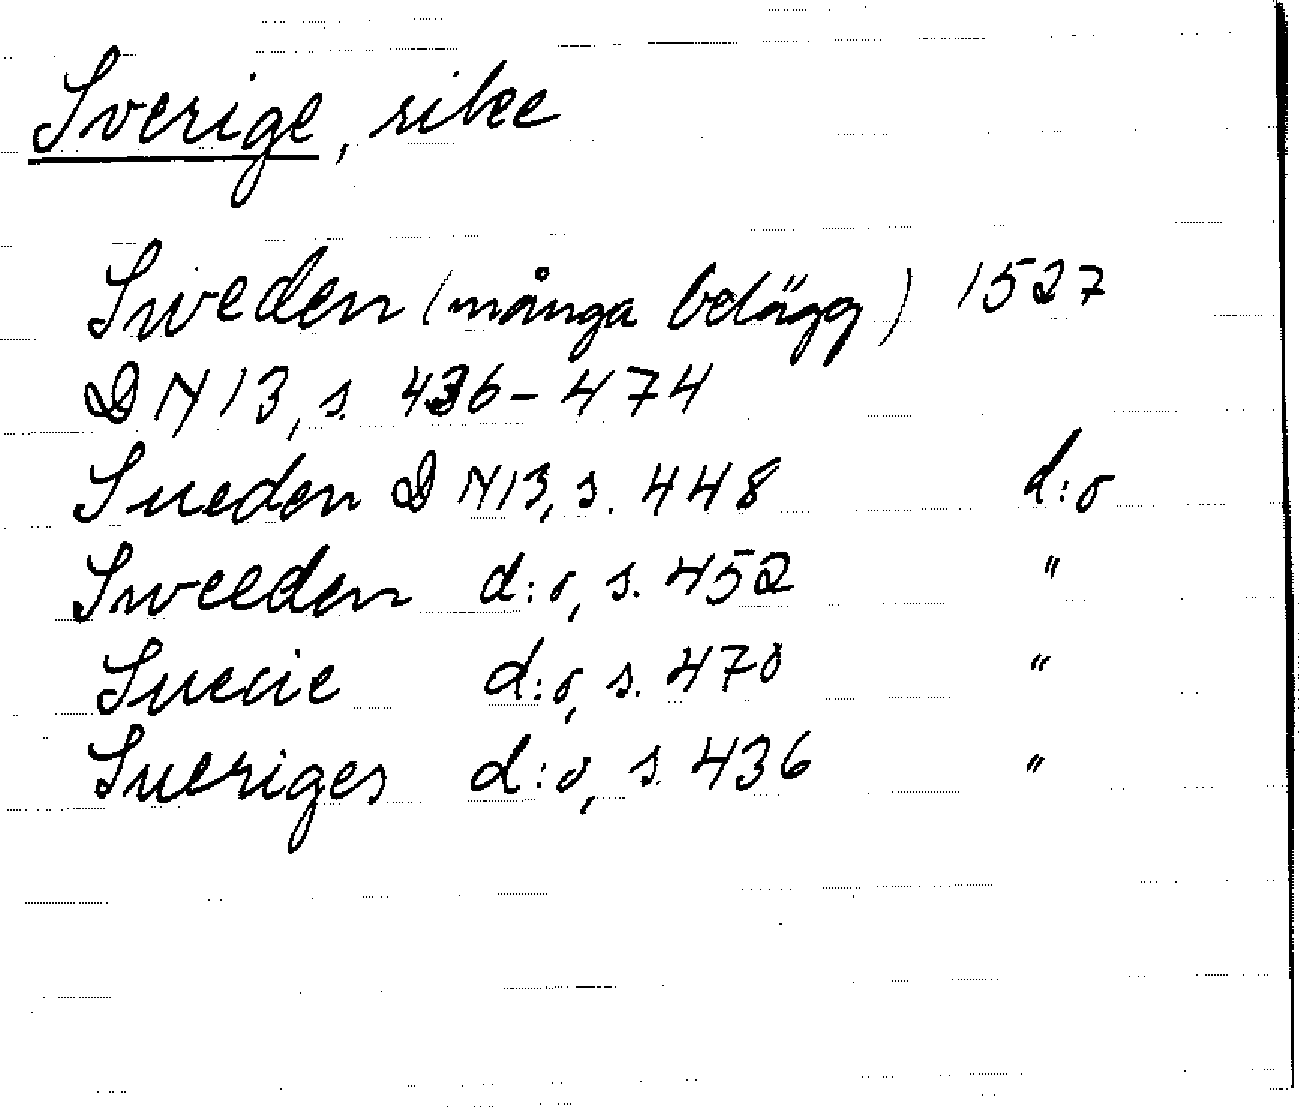 Sverige, rike
Sweden (många belägg) 1527
DN 13, s. 436-474
Sueden DN 13, s. 448 d:o
Sweeden d:o, s. 452 "
Suecie d:o, s. 470 "
Sueriges d:o, s. 436 "